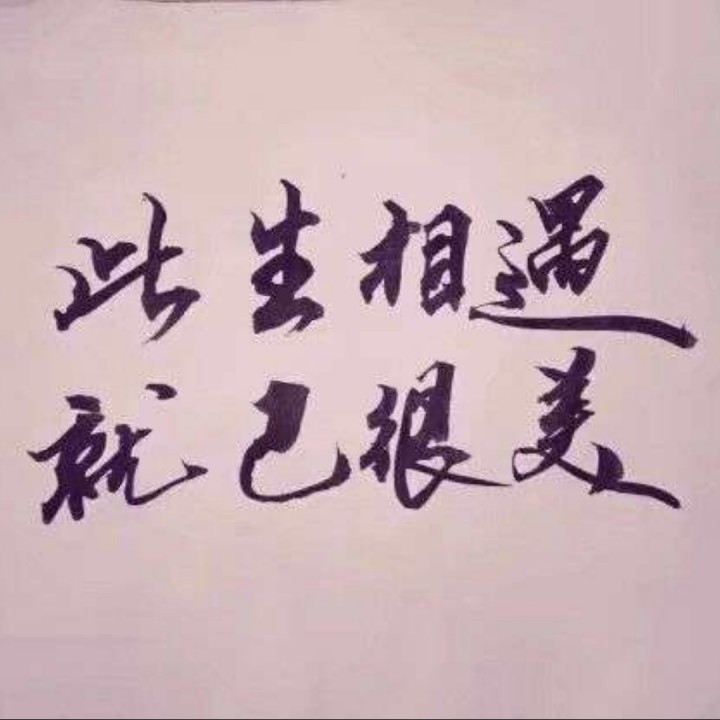 此生相遇
就已很美